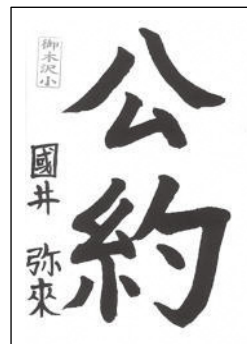 公約
御木沢小
國井 弥來